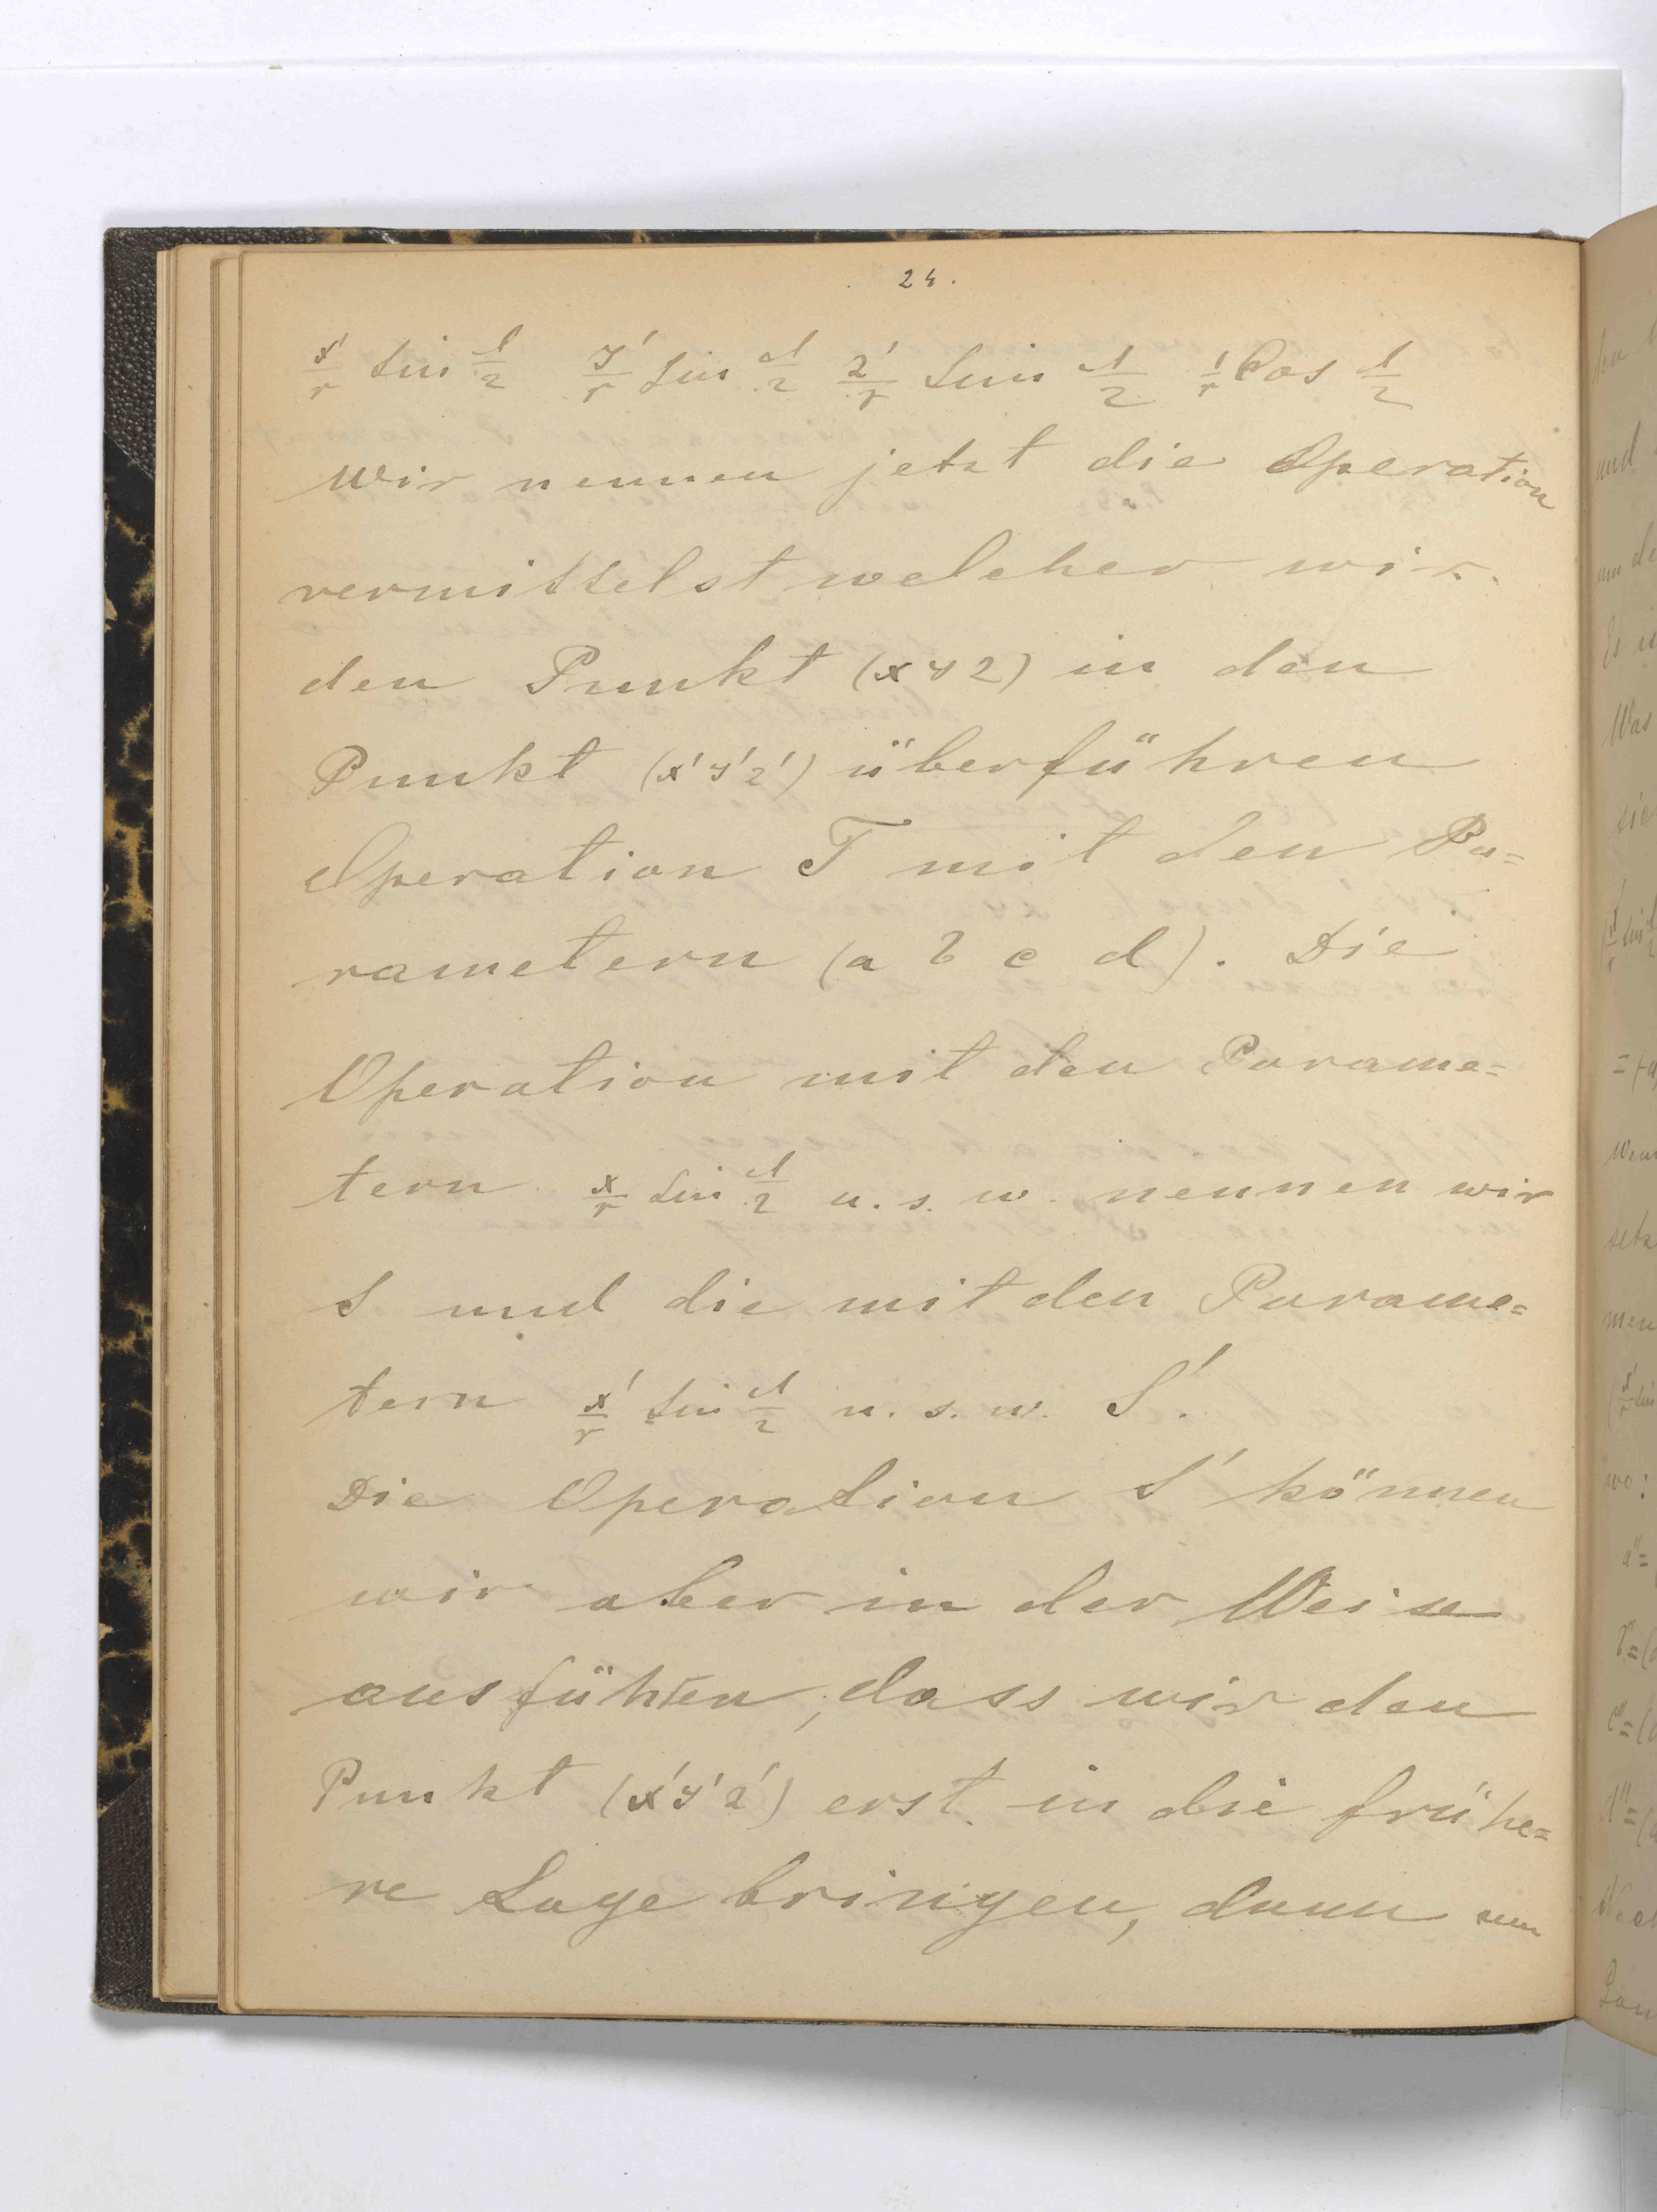 24.
x'/r sin d/2 y'/r sin d/2 z'/r sin d/2 1/r cos d/2
Wir nennen jetzt die Operation
vermittelst welcher wir
den Punkt (x y z) in den
Punkt (x' y' z') überführen
Operation T mit den Pa=
rametern (a b c d). Die
Operation mit den Parame=
tern x/r sin d/2 u. s. w. nennen wir
S und die mit den Parame=
tern x'/r sin d/2 u. s. w. S'.
Die Operation S' können
wir aber in der Weise
ausführen, dass wir den
Punkt (x' y' z') erst in die frühe=
re Lage bringen, dann um